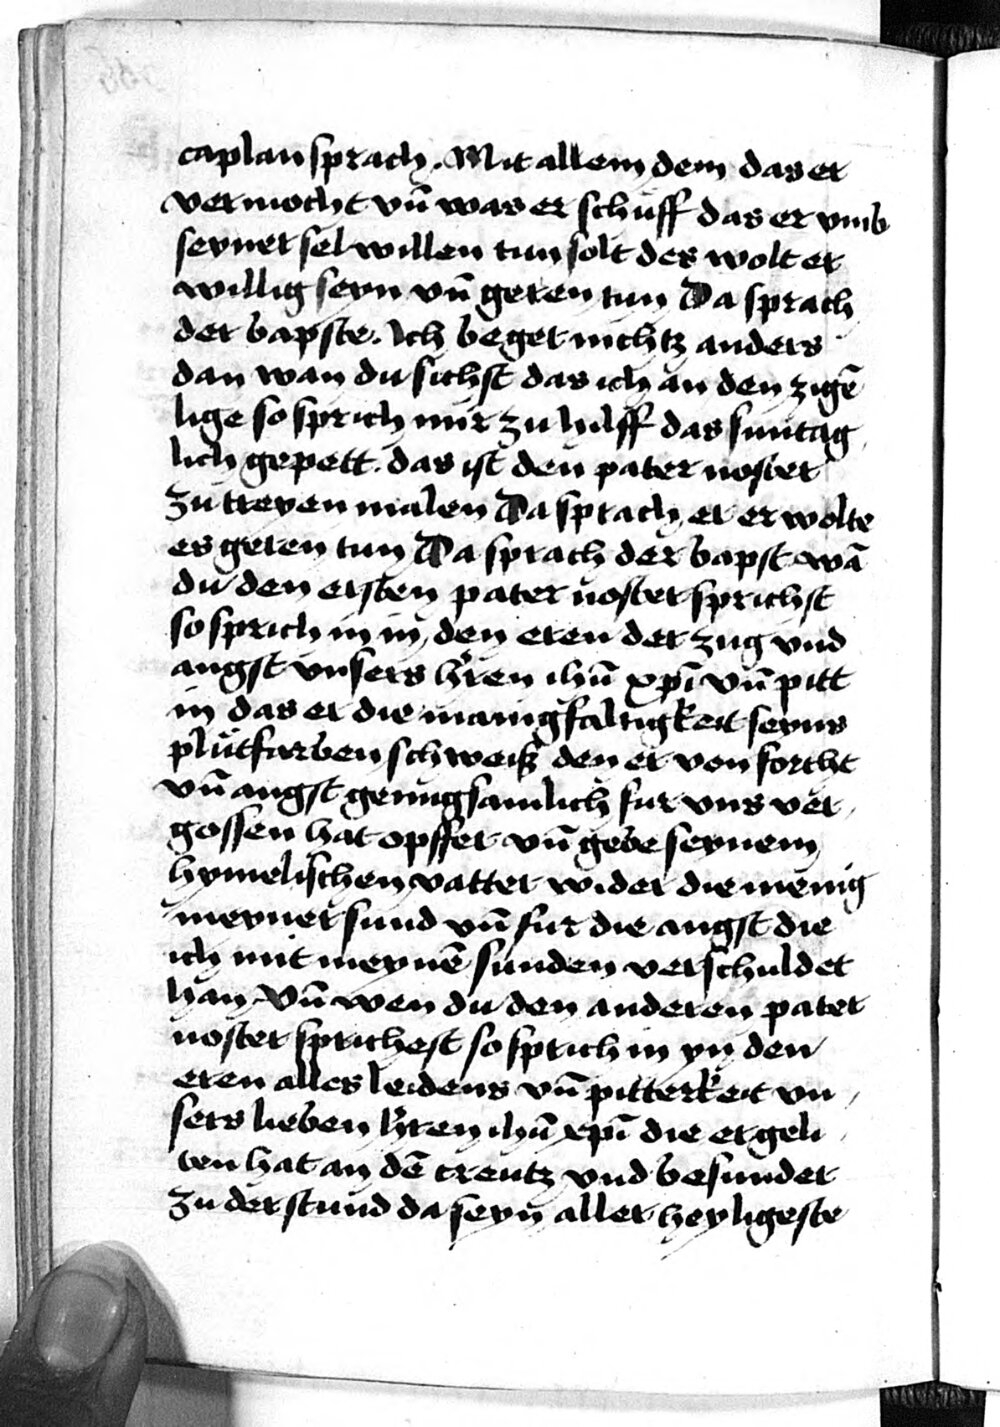 caplan sprach. Mit allem dem das er
vermocht vn̄ was er schuff das er vmb
seyner sel willen tun solt des wolt er
willig seyn vn̄ geren tun Da sprach
der bapste. Ich beger nichtz anders
dan wan du sichst das ich an den zigē
lige so sprich mir zu hilff das suntag
lich gepett. das ist den pater noster
zu treyen malen Da sprach er er wolte
es geren tun Da sprach der bapst wā
du den ersten pater noster sprichst
so sprich in in den eren der zug vnd
angst vnsers hr̄en ihū xp̄i vn̄ pitt
in das er die manigfaltigkeit seyns
plutfarben schweiß den er von forcht
vn̄ angst genugsamlich fur vns ver
gossen hat opffer vn̄ gebe seynem
hymelischen vatter wider die menig
meyner sund vn̄ fur die angst die
ich mit meynē sunden verschuldet
han Vn̄ wen du den anderen pater
noster sprichest so sprich in yn den
eren alles leidens vn̄ pitterkeit vn
sers lieben hr̄en ihū xp̄i die er geli
ten hat an dē creutz vnd besunder
zu der stund da seyn aller heyligeste